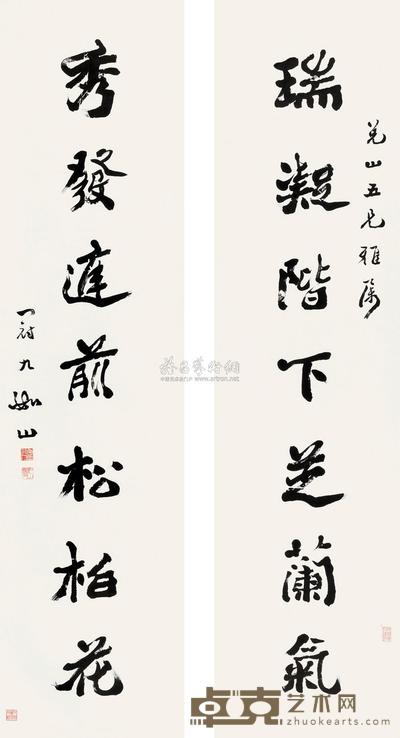 瑞凝階下芝蘭氣
秀發庭前松柏花
山五兄雅屬
九
山
卓克艺术网
www.artron.net
zhuokearts.com